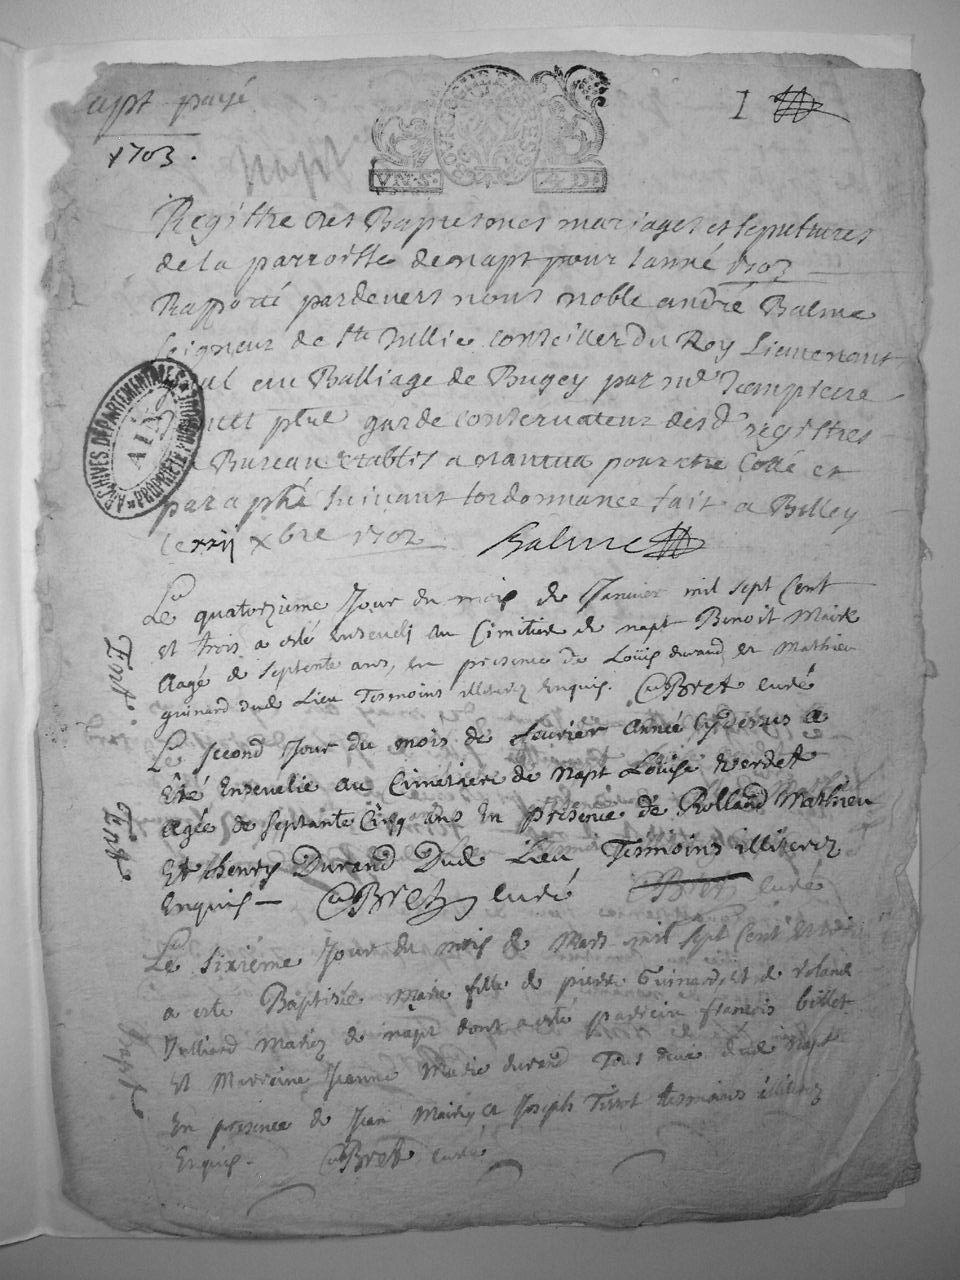 napt payé
1703.
I
BOURG BRESSE
VN·S· 4·D·
napt
Registre des Baptesmes mariages et sepultures
de la parroisse de napt pour l'anné 1703
Rapporté pardevers nous noble andré Balme
seigneur de Ste Jullie conseiller du Roy Lieutenant
au Balliage de Bugey par me
garde conservateur desd registres
Bureau etabli a nantua pour etre Cotté et
paraphé suivant lordonnance fait a Belley
le xxij xbre 1702 Balme
ARCHIVES DÉPARTEMENTALES AIN PROPRIÉTÉ PUBLIQUE
Le quatorzieme Jour du mois de Janvier mil sept Cent
et trois a esté enseveli au Cimitiere de napt Benoit Maire
Aagé de septente ans, en presence de Loüis durand et Mathieu
guinard dud Lieu Tesmoins illiterez Enquis. Bret curé
Le second Jour du mois de feurier Année Cydessus a
Eté Ensevelie au Cimetiere de Napt Loüise Verdet
Agée de septante Cinq ans En presence de Rolland Mathieu
Et henry Durand Dud Lieu Tesmoins illiterez
Enquis - Bret curé Bret curé
Le sixième Jour du mois de Mars mil sept Cent et trois
a este Baptisée Marie fille de pierre Guinard et de rolande
Julliard Mariez de napt dont a esté parrein francois billet
Et Marreine Jeanne Marie durand Tous deux dud Napt
En presence de Jean Maire et Joseph Tissot tesmoins illiterez
Enquis. Bret curé